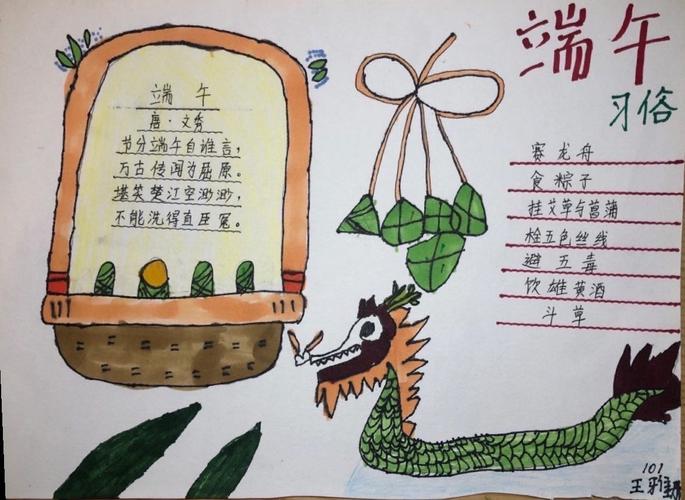 端午
习俗
端 午
唐·文秀
节分端午自谁言，
万古传闻为屈原。
堪笑楚江空渺渺，
不能洗得直臣冤。
赛龙舟
食粽子
挂艾草与菖蒲
栓五色丝线
避五毒
饮雄黄酒
斗草
101
王雅